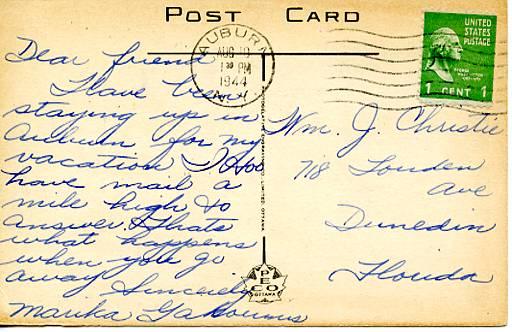 POST CARD
AUBURN
AUG 10
1 30 PM
1944
N.Y.
UNITED
STATES
POSTAGE
1 CENT 1
Dear friend
Have been
staying up in
Auburn for my
vacation I too
have mail a
mile high to
answer. Thats
what happens
when you go
away
Sincerely
Marika
Wm. J. Christie
718 Louden
Ave
Dunedin
Florida
PECO
OTTAWA